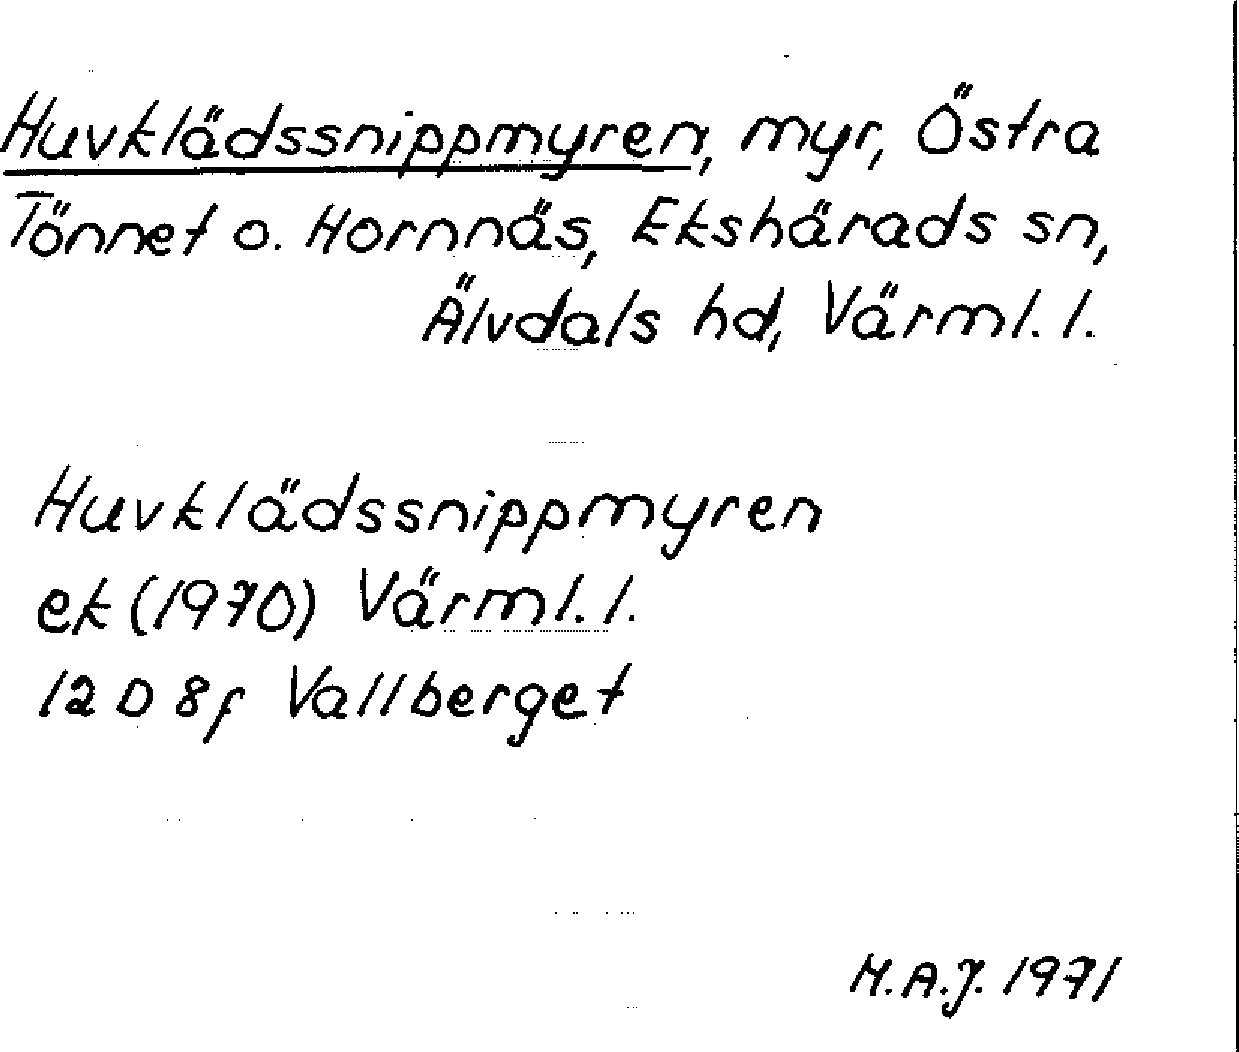 Huvklädssnippmyren, myr, Östra
Tönnet o. Hornnäs, Ekshärads sn,
Älvdals hd, Värml. l.
Huvklädssnippmyren
ek (1970) Värml. l.
12 D 8f Vallberget
H.A.J. 1971